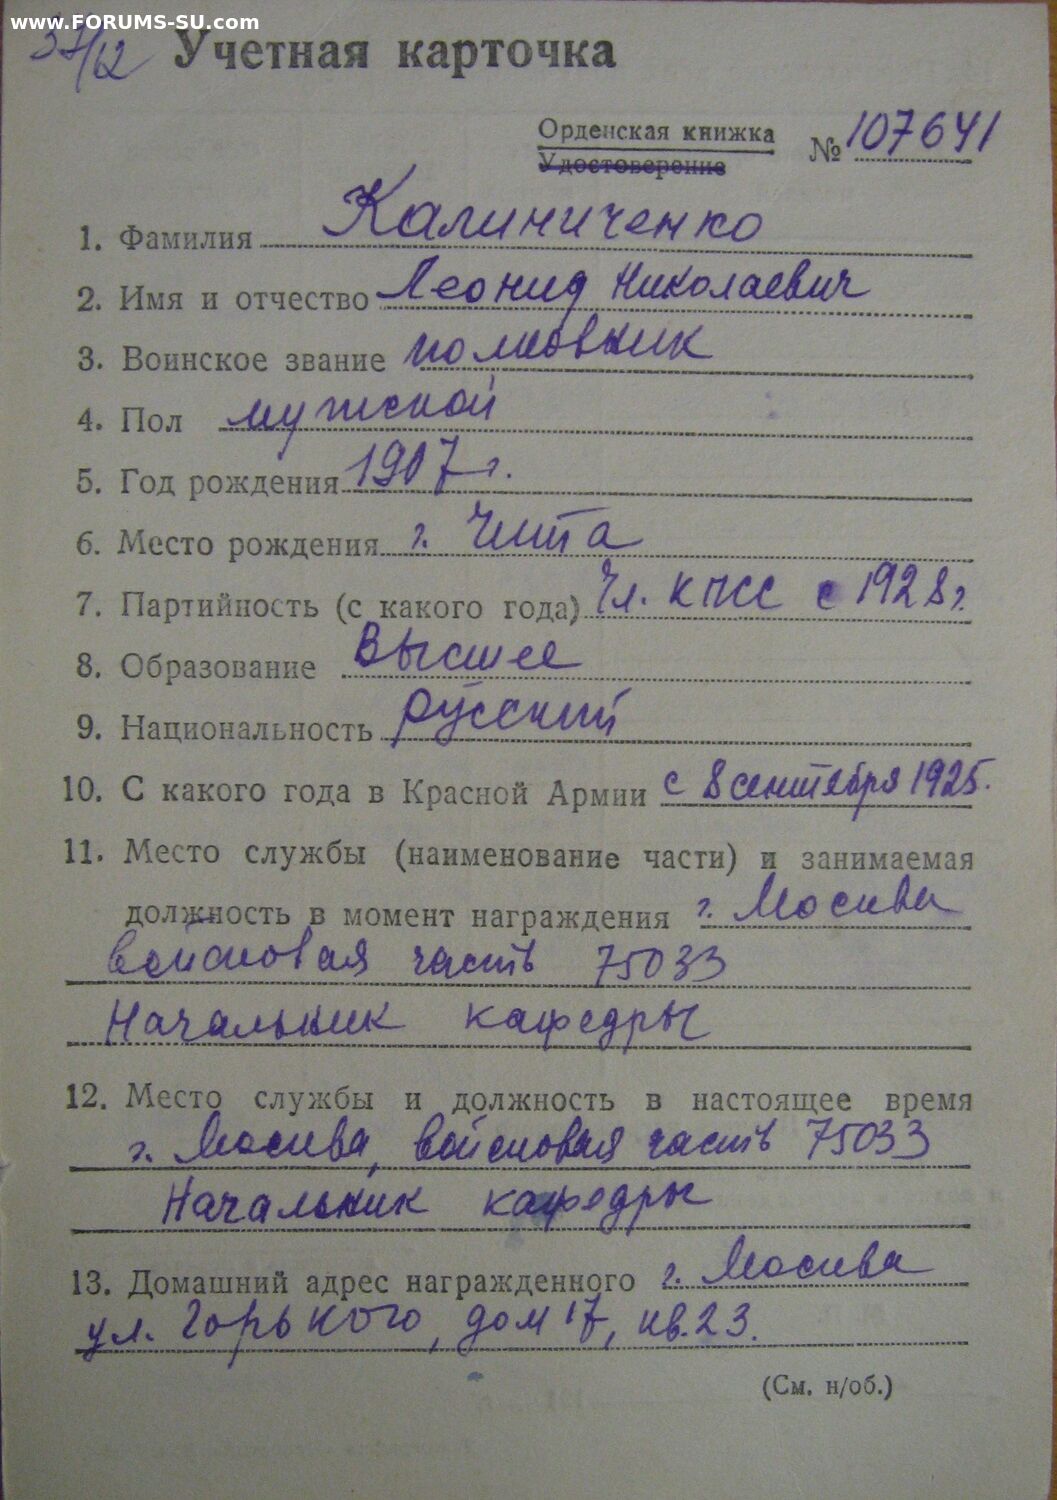 www.FORUMS-SU.com
37/12 Учетная карточка
Орденская книжка
Удостоверение
№ 107641
1. Фамилия Калиниченко
2. Имя и отчество Леонид Николаевич
3. Воинское звание полковник
4. Пол мужской
5. Год рождения 1907 г.
6. Место рождения г. Чита
7. Партийность (с какого года) Чл. КПСС с 1928 г.
8. Образование Высшее
9. Национальность русский
10. С какого года в Красной Армии с 8 сентября 1925.
11. Место службы (наименование части) и занимаемая
должность в момент награждения г. Москва
войсковая часть 75033
Начальник кафедры
12. Место службы и должность в настоящее время
г. Москва, войсковая часть 75033
Начальник кафедры
13. Домашний адрес награжденного г. Москва
ул. Горького, дом 17, кв. 23.
(См. н/об.)